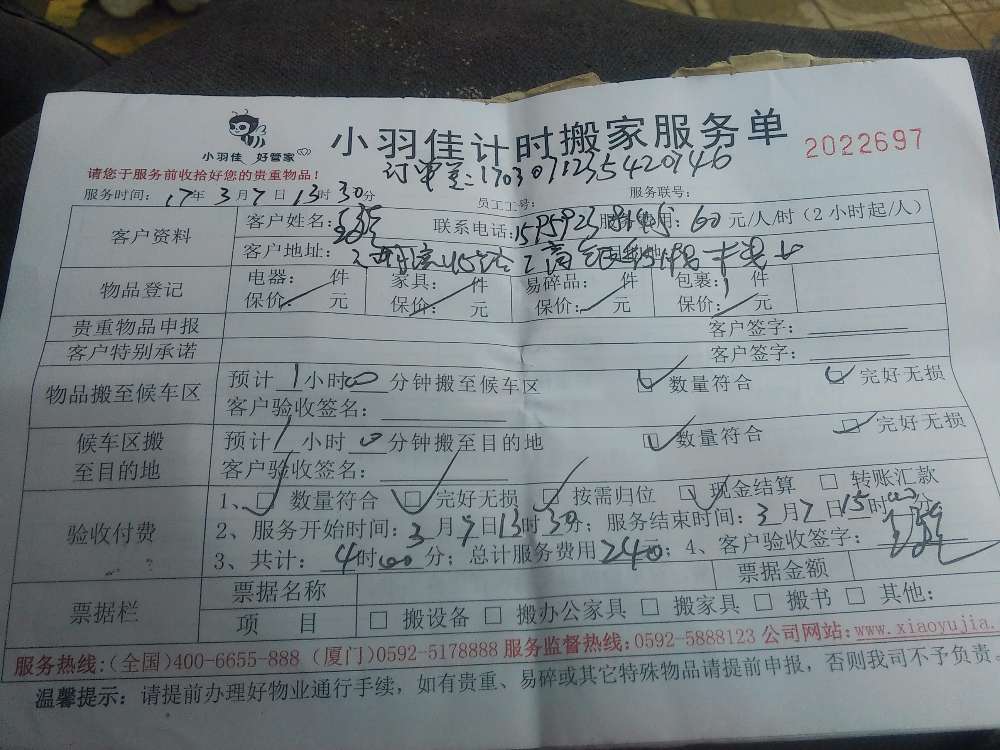 小羽佳 好管家
小羽佳计时搬家服务单
2022697
请您于服务前收拾好您的贵重物品!
订单号:1703071235420746
服务时间: 17年 3月 7日 13时 30分 员工工号: 服务联号:
客户资料 客户姓名: 联系电话: 服务费用: 60元/人/时（2小时起/人）
客户地址:
物品登记 电器: 件 家具: 件 易碎品: 件 包裹: 件
保价: 元 保价: 元 保价: 元 保价: 元
贵重物品申报 客户签字:
客户特别承诺 客户签字:
物品搬至候车区 预计 1小时00分钟搬至候车区 数量符合 完好无损
客户验收签名:
候车区搬至目的地 预计 1小时 0分钟搬至目的地 数量符合 完好无损
客户验收签名:
验收付费 1、 数量符合 完好无损 按需归位 现金结算 转账汇款
2、服务开始时间: 3月7日13时30分; 服务结束时间: 3月7日15时 分
3、共计: 4时00分; 总计服务费用240元; 4、客户验收签字:
票据栏 票据名称 票据金额
项 目 搬设备 搬办公家具 搬家具 搬书 其他:
服务热线:(全国)400-6655-888 (厦门)0592-5178888 服务监督热线:0592-5888123 公司网站:www.xiaoyujia.
温馨提示: 请提前办理好物业通行手续，如有贵重、易碎或其它特殊物品请提前申报，否则我司不予负责。